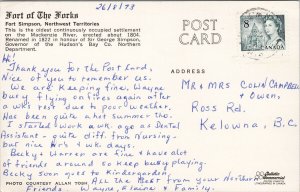 Fort of The Forks
Fort Simpson, Northwest Territories
This is the oldest continuously occupied settlement
on the Mackenzie River, erected about 1804.
Renamed in 1822 in honour of Sir George Simpson,
Governor of the Hudson's Bay Co. Northern
Department.
26/8/73
POST
CARD
8
CANADA
Hi!
Thank you for the Post Card,
Nice of you to remember us.
We are keeping fine, Wayne
busy flying on fires again after
a wks rest due to poor weather.
Has been quite a hot summer tho.
I started work a wk. ago as Dental
Assistant - quite diff. from Nursing
but nice hrs & wk. days.
Becky & Warren are fine & have alot
of friends around to keep busy playing.
Becky soon goes to Kindergarden.
All the Best from your Northern
Friends. Wayne, Elaine & Family.
ADDRESS
Mr & Mrs Colin Campbell
& Owen,
Ross Rd.
Kelowna, B.C.
PHOTO COURTESY ALLAN TOSH